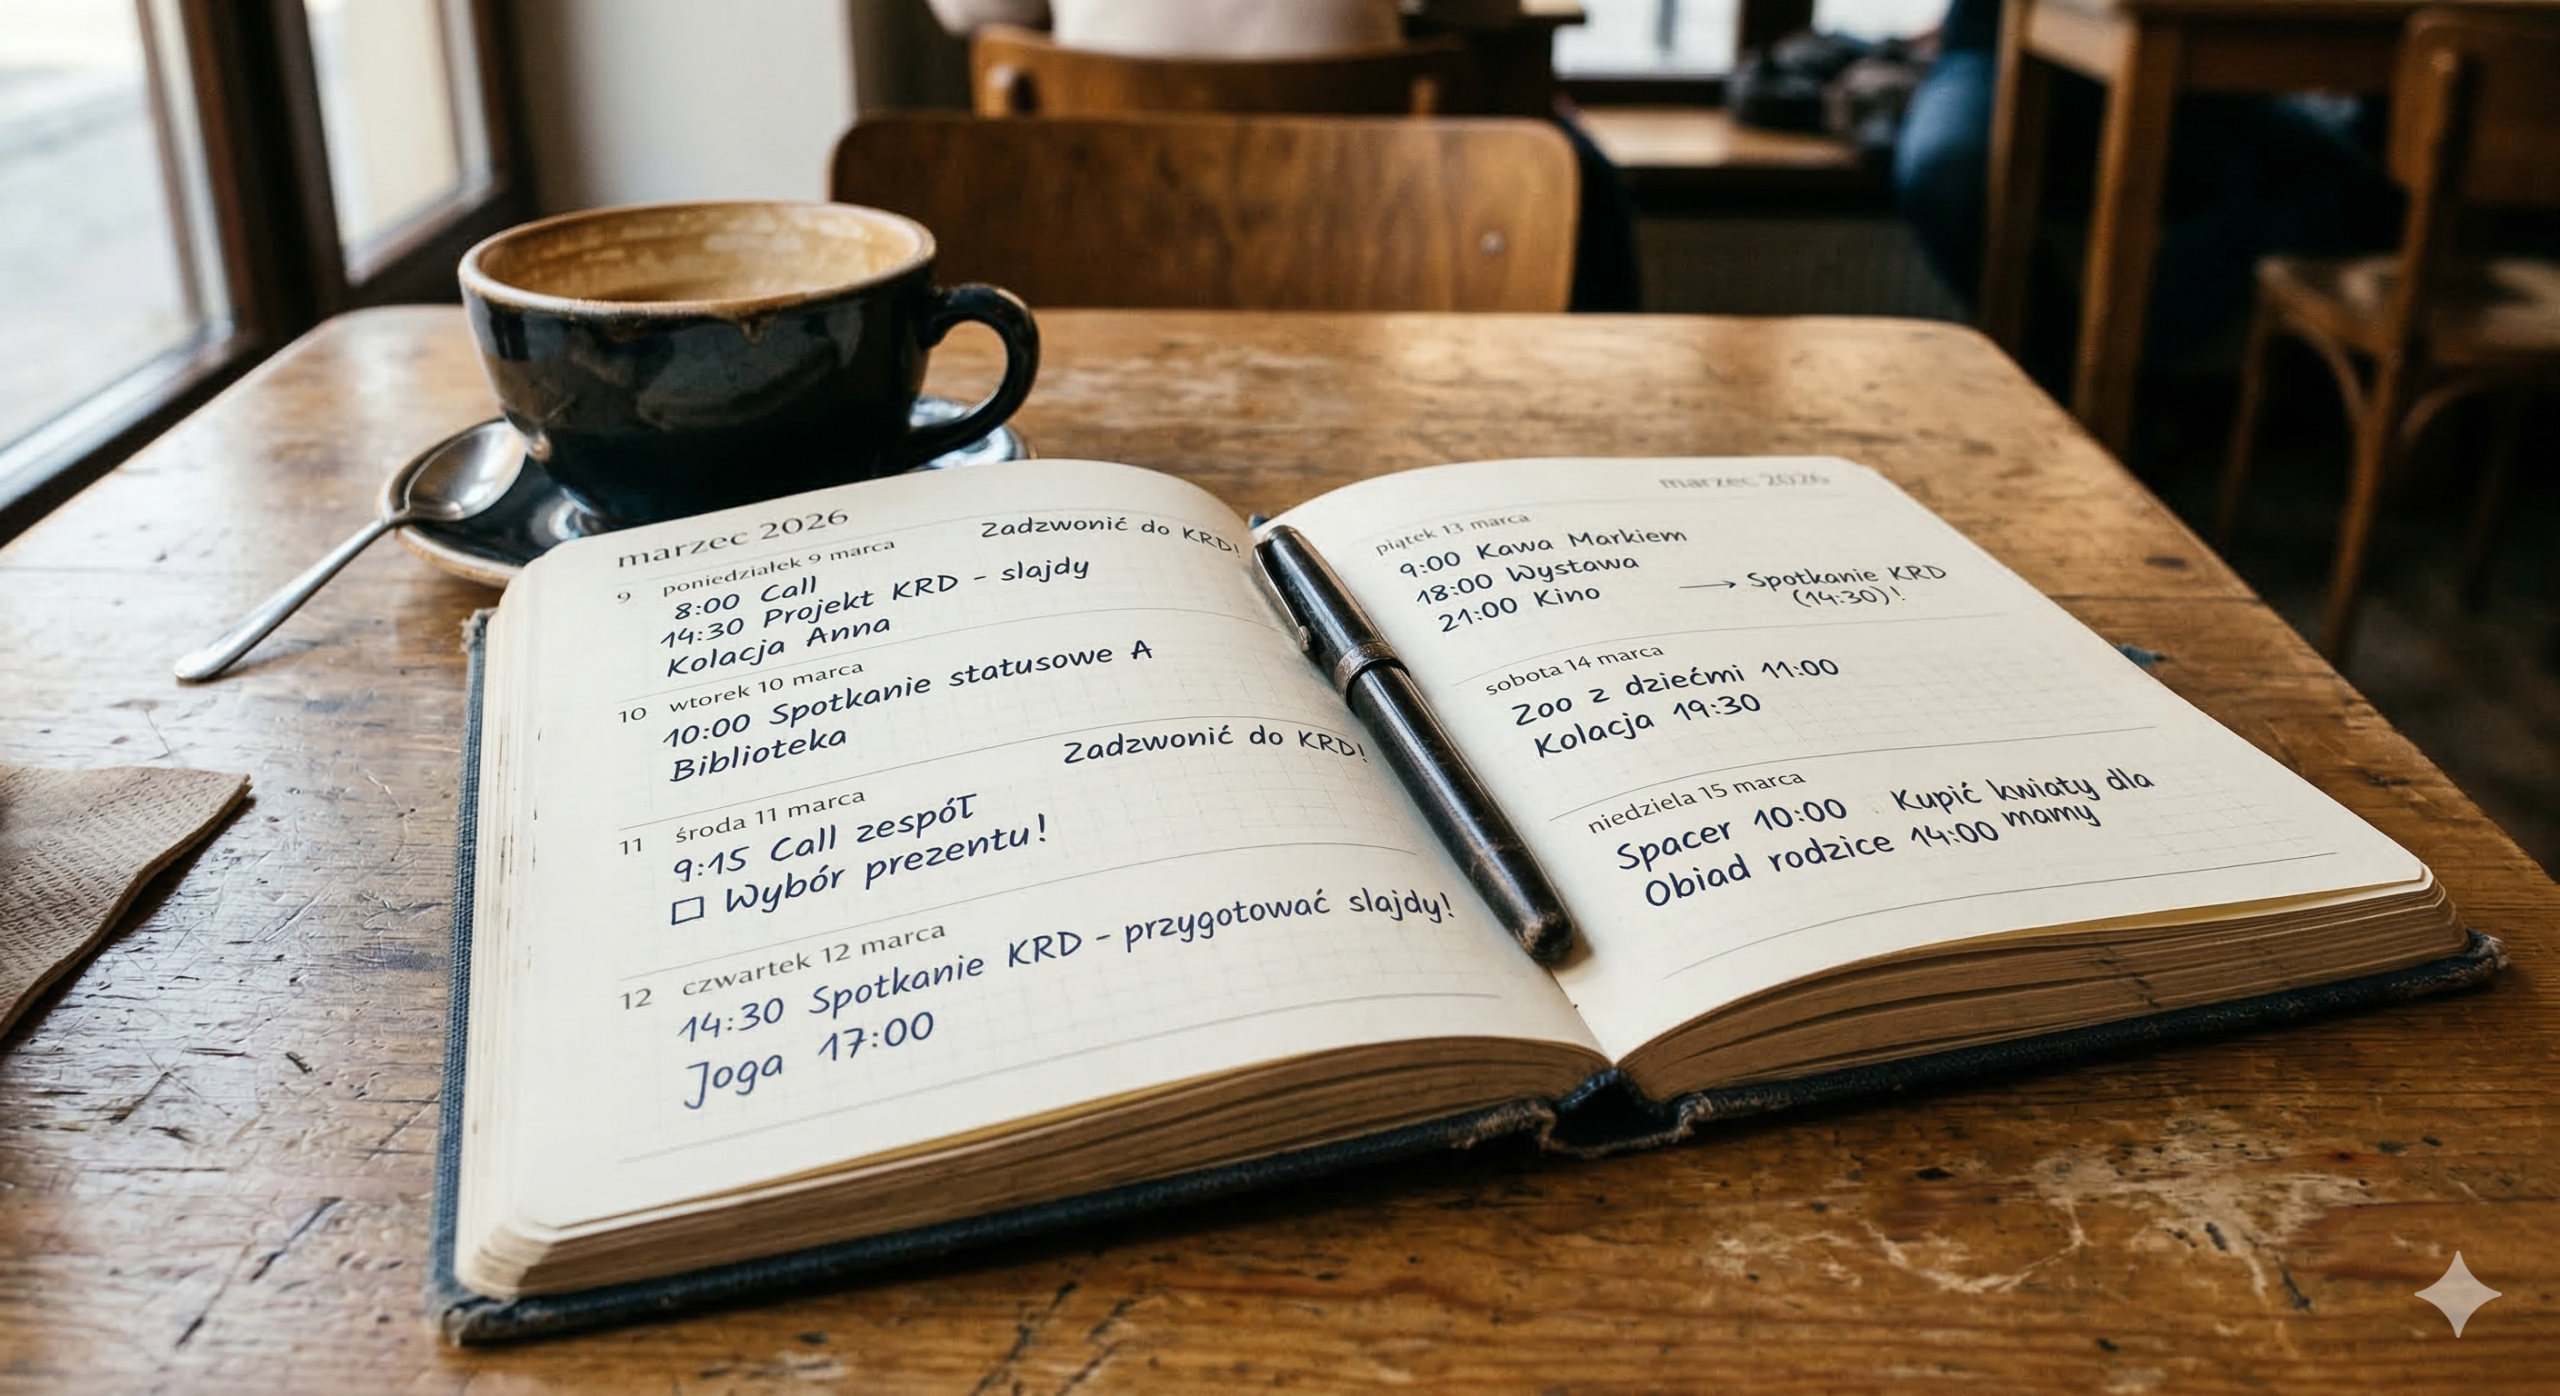 marzec 2026
9 poniedziałek 9 marca
Zadzwonić do KRD!
8:00 Call
14:30 Projekt KRD - slajdy
Kolacja Anna
10 wtorek 10 marca
10:00 Spotkanie statusowe A
Biblioteka
Zadzwonić do KRD!
11 środa 11 marca
9:15 Call zespół
☐ Wybór prezentu!
12 czwartek 12 marca
14:30 Spotkanie KRD - przygotować slajdy!
Joga 17:00
marzec 2026
piątek 13 marca
9:00 Kawa Markiem
18:00 Wystawa
→ Spotkanie KRD
(14:30)!
21:00 Kino
sobota 14 marca
Zoo z dziećmi 11:00
Kolacja 19:30
niedziela 15 marca
Spacer 10:00
Kupić kwiaty dla
mamy
Obiad rodzice 14:00